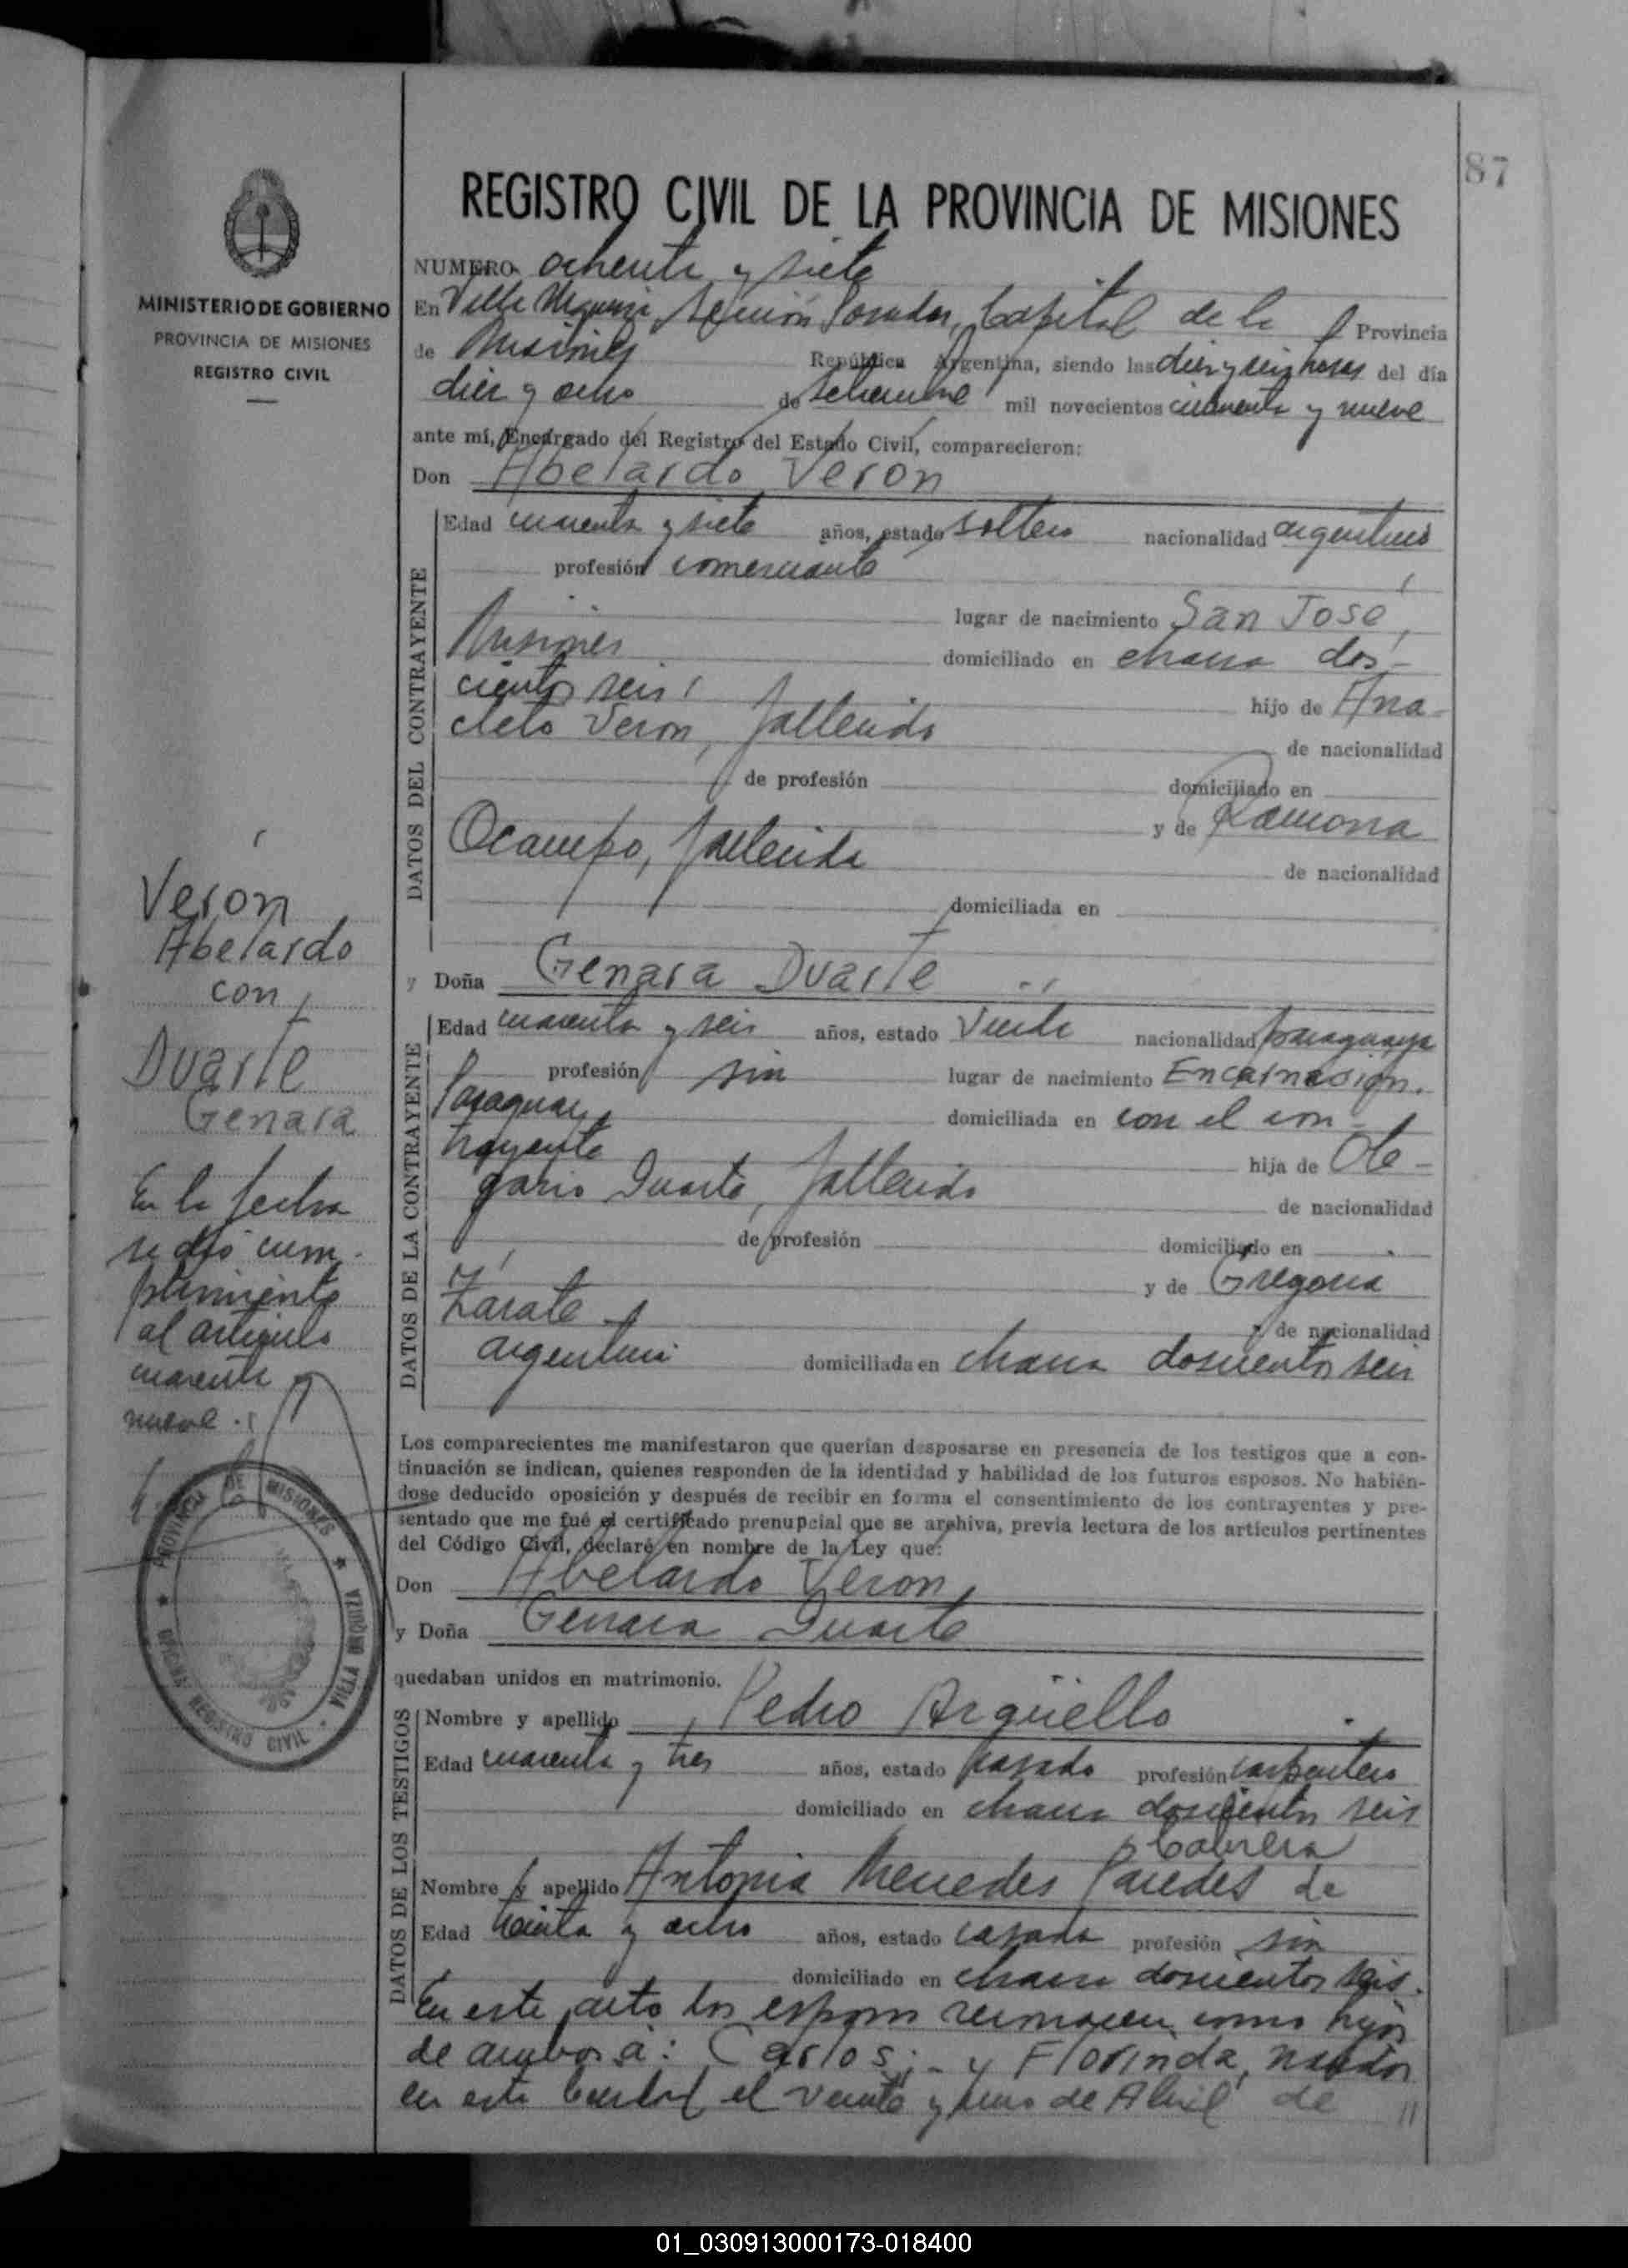 87
MINISTERIO DE GOBIERNO
PROVINCIA DE MISIONES
REGISTRO CIVIL
REGISTRO CIVIL DE LA PROVINCIA DE MISIONES
NUMERO ochenta y siete
En Villa Urquiza, Sección Posadas, Capital de la Provincia
de Misiones República Argentina, siendo las diez y seis horas del día
diez y ocho de setiembre mil novecientos cincuenta y nueve
ante mí, Encargado del Registro del Estado Civil, comparecieron:
Don Abelardo Veron
DATOS DEL CONTRAYENTE
Edad cuarenta y siete años, estado soltero nacionalidad argentino
profesión comerciante
lugar de nacimiento San José,
Misiones domiciliado en chacra dos-
cientos seis hijo de Ana-
cleto Veron, fallecido de nacionalidad
de profesión domiciliado en
y de Ramona
Ocampo, fallecida de nacionalidad
domiciliada en
y Doña Genara Duarte
DATOS DE LA CONTRAYENTE
Edad cuarenta y seis años, estado Viuda nacionalidad paraguaya
profesión sin lugar de nacimiento Encarnasión.
Paraguay domiciliada en con el con-
trayente hija de Ole-
gario Duarte, fallecido de nacionalidad
de profesión domiciliado en
y de Gregoria
Zárate de nacionalidad
argentina domiciliada en chacra doscientos seis
Los comparecientes me manifestaron que querían desposarse en presencia de los testigos que a con-
tinuación se indican, quienes responden de la identidad y habilidad de los futuros esposos. No habién-
dose deducido oposición y después de recibir en forma el consentimiento de los contrayentes y pre-
sentado que me fué el certificado prenupcial que se archiva, previa lectura de los artículos pertinentes
del Código Civil, declaré en nombre de la Ley que:
Don Abelardo Veron
y Doña Genara Duarte
quedaban unidos en matrimonio.
DATOS DE LOS TESTIGOS
Nombre y apellido Pedro Argüello
Edad cuarenta y tres años, estado casado profesión carpintero
domiciliado en chacra doscientos seis
Cabrera
Nombre y apellido Antonia Mercedes Paredes de
Edad treinta y ocho años, estado casada profesión sin
domiciliado en chacra doscientos seis.
En este acto los esposos reconocen como hijos
de ambos a: Carlos; - y Florinda, nacidos
en esta Capital el veinte y uno de Abril de //
Verón
Abelardo
con
Duarte
Genara
En la fecha
se dió cum-
plimiento
al artículo
cuarenta y
nueve.
PROVINCIA DE MISIONES ★ VILLA URQUIZA · OFICINA REGISTRO CIVIL ★
01_030913000173-018400